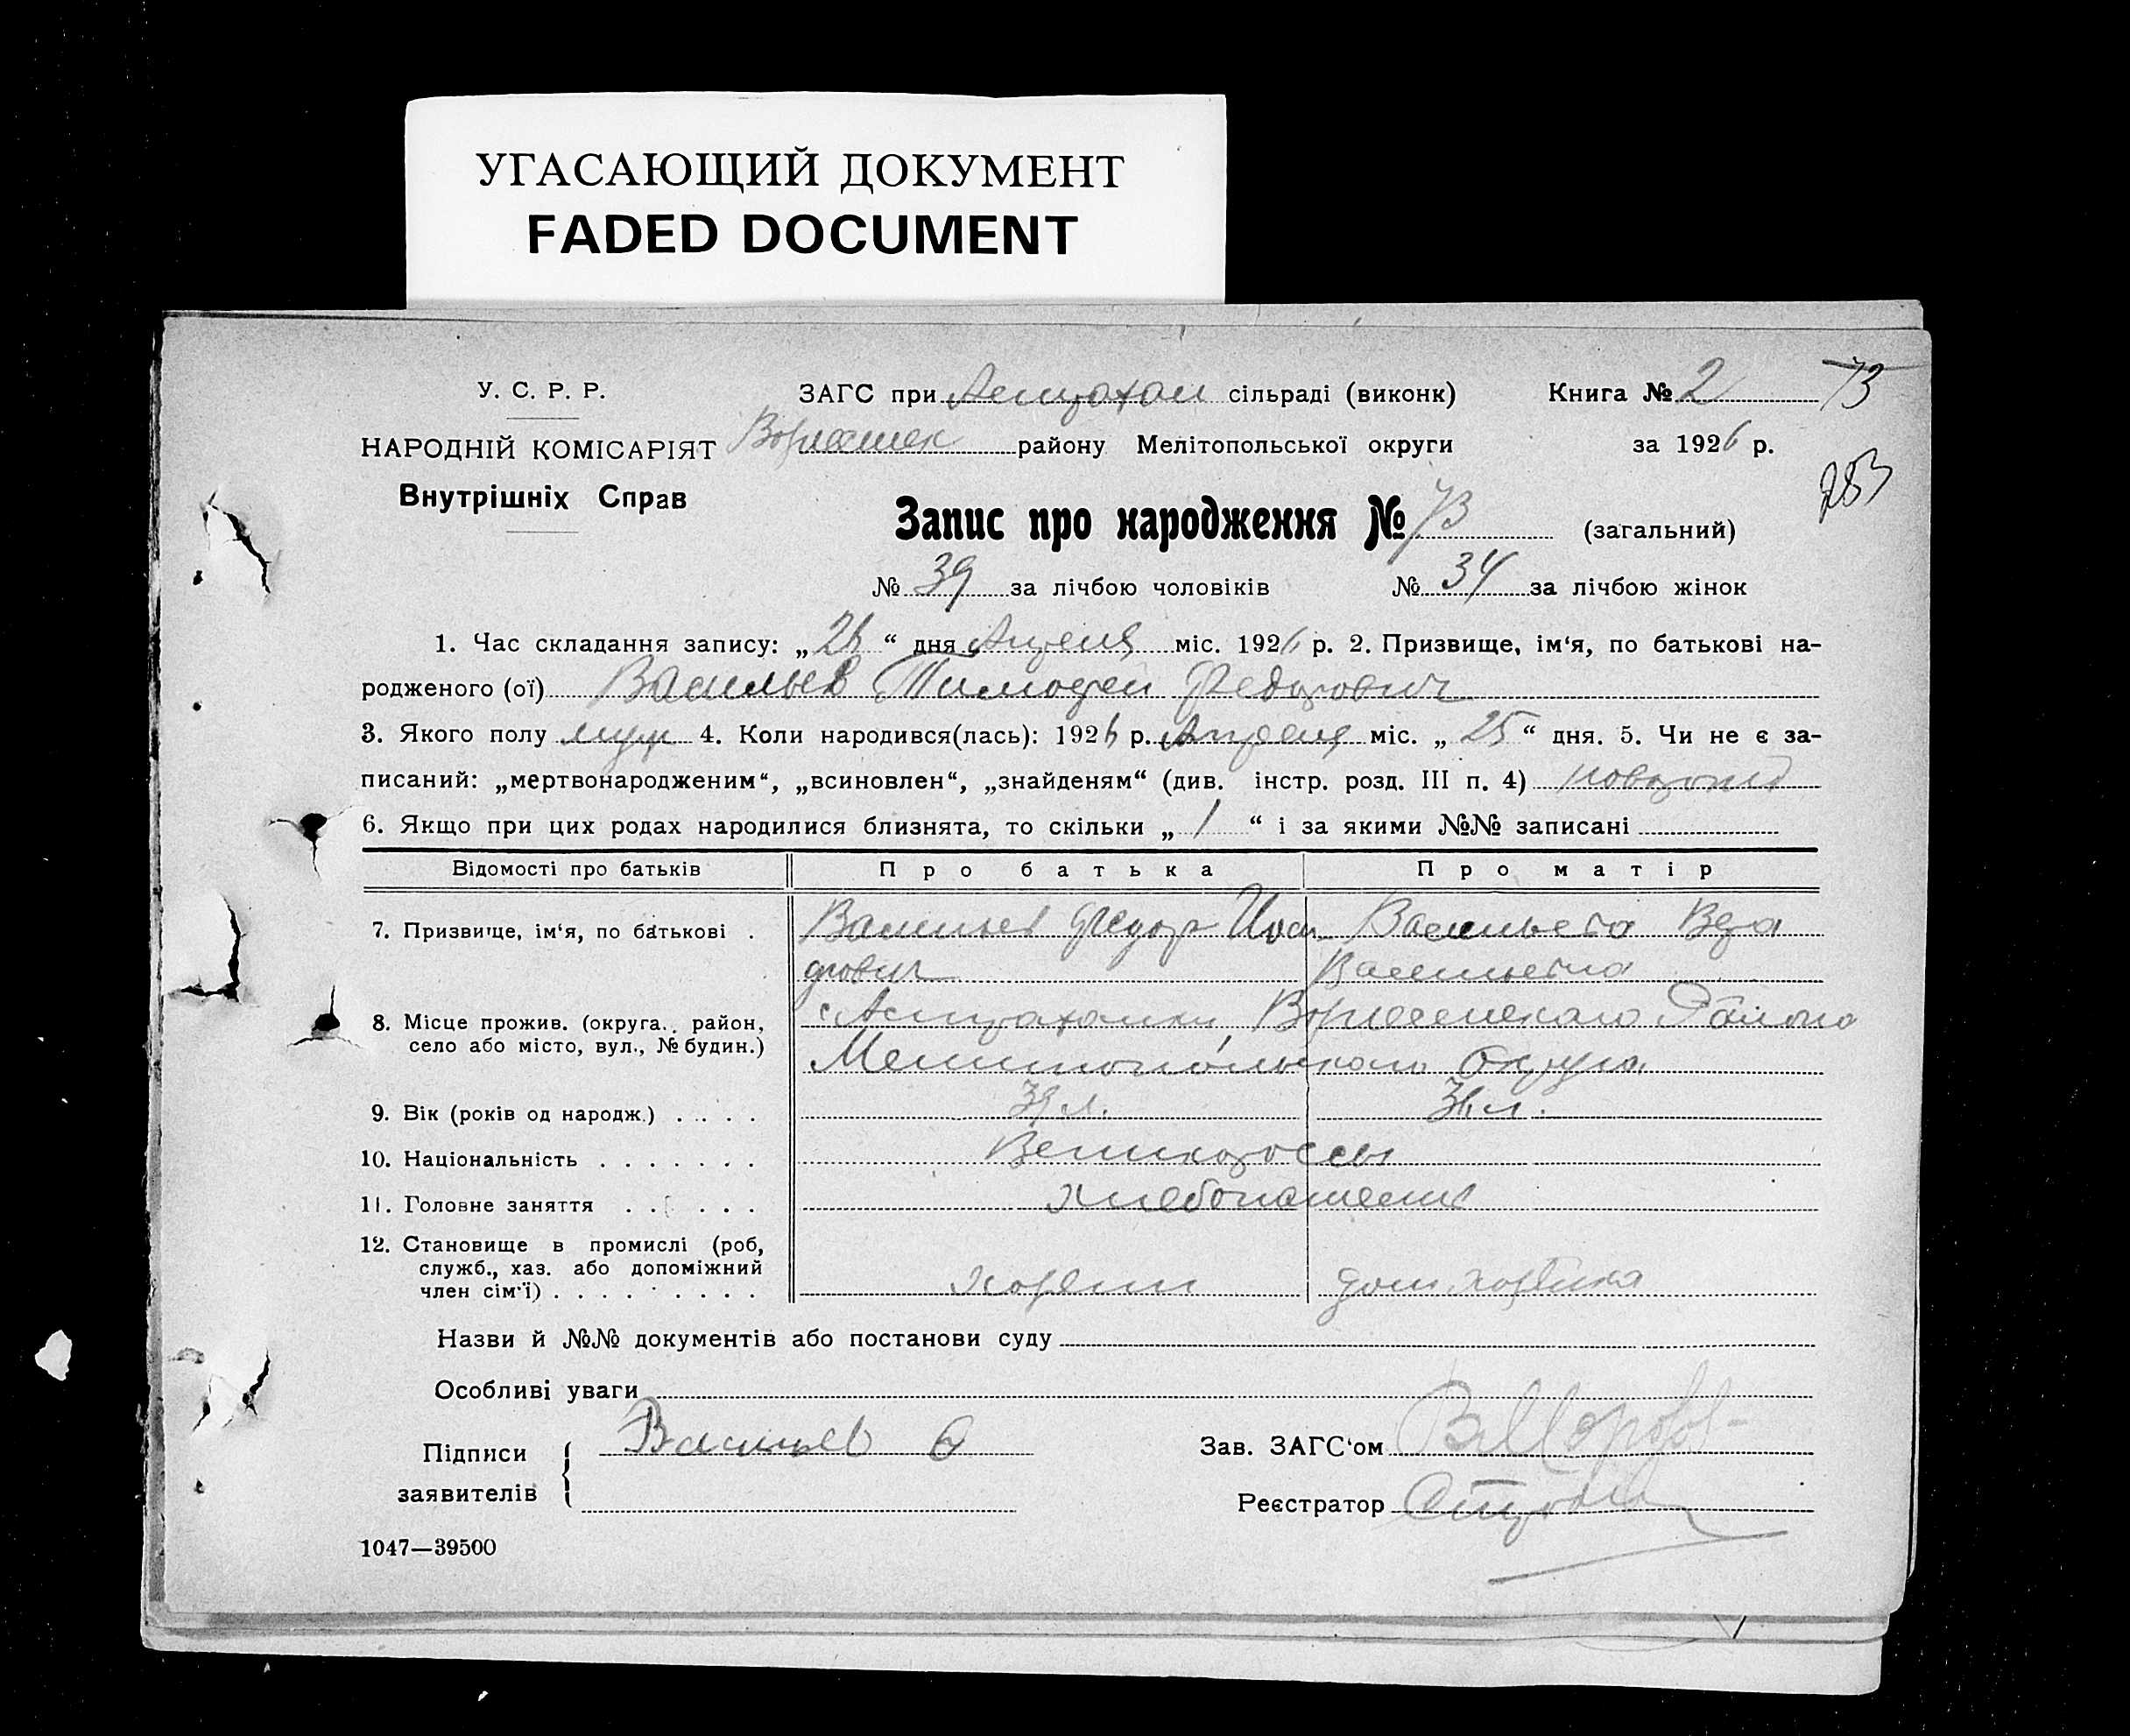 УГАСАЮЩИЙ ДОКУМЕНТ
FADED DOCUMENT
У. С. Р. Р.
ЗАГС при Астрахан сільраді (виконк)
Книга № 2
73
НАРОДНІЙ КОМІСАРІЯТ
району Мелітопольської округи
за 1926 р.
Внутрішніх Справ
283
Запис про народження № 73 (загальний)
№ 39 за лічбою чоловіків № 34 за лічбою жінок
1. Час складання запису: „26“ дня Апреля міс. 1926 р. 2. Призвище, ім‘я, по батькові на-
родженого (ої) Васильев Тимофей Федорович
3. Якого полу муж 4. Коли народився(лась): 1926 р. Апреля міс. „25“ дня. 5. Чи не є за-
писаний: „мертвонародженим“, „всиновлен“, „знайденям“ (див. інстр. розд. III п. 4)
6. Якщо при цих родах народилися близнята, то скільки „1“ і за якими №№ записані
Відомості про батьків
Про батька
Про матір
7. Призвище, ім‘я, по батькові .
Васильев Федор
Васильева Вера
Васильевна
8. Місце прожив. (округа., район,
село або місто, вул., № будин.)
с Астраханки, Района
Мелитопольскаго Округа
9. Вік (років од народж.) . . . .
39 л.
36 л.
10. Національність . . . . . . .
Великороссы
11. Головне заняття . . . . . .
хлебопашение
12. Становище в промислі (роб,
служб., хаз. або допоміжний
член сім‘ї) . . . . . . . . .
хозяин
дом. хозяйка
Назви й №№ документів або постанови суду
Особливі уваги
Підписи
заявителів
Васильев
Зав. ЗАГС‘ом
Реєстратор
1047—39500